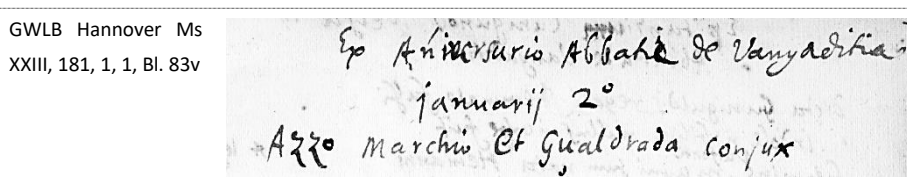 GWLB Hannover Ms
XXIII, 181, 1, 1, Bl. 83v
Ex Aniversario Abbatie de Vangaditia
januarij 2°
Azzo Marchio Et Gualdrada conjux